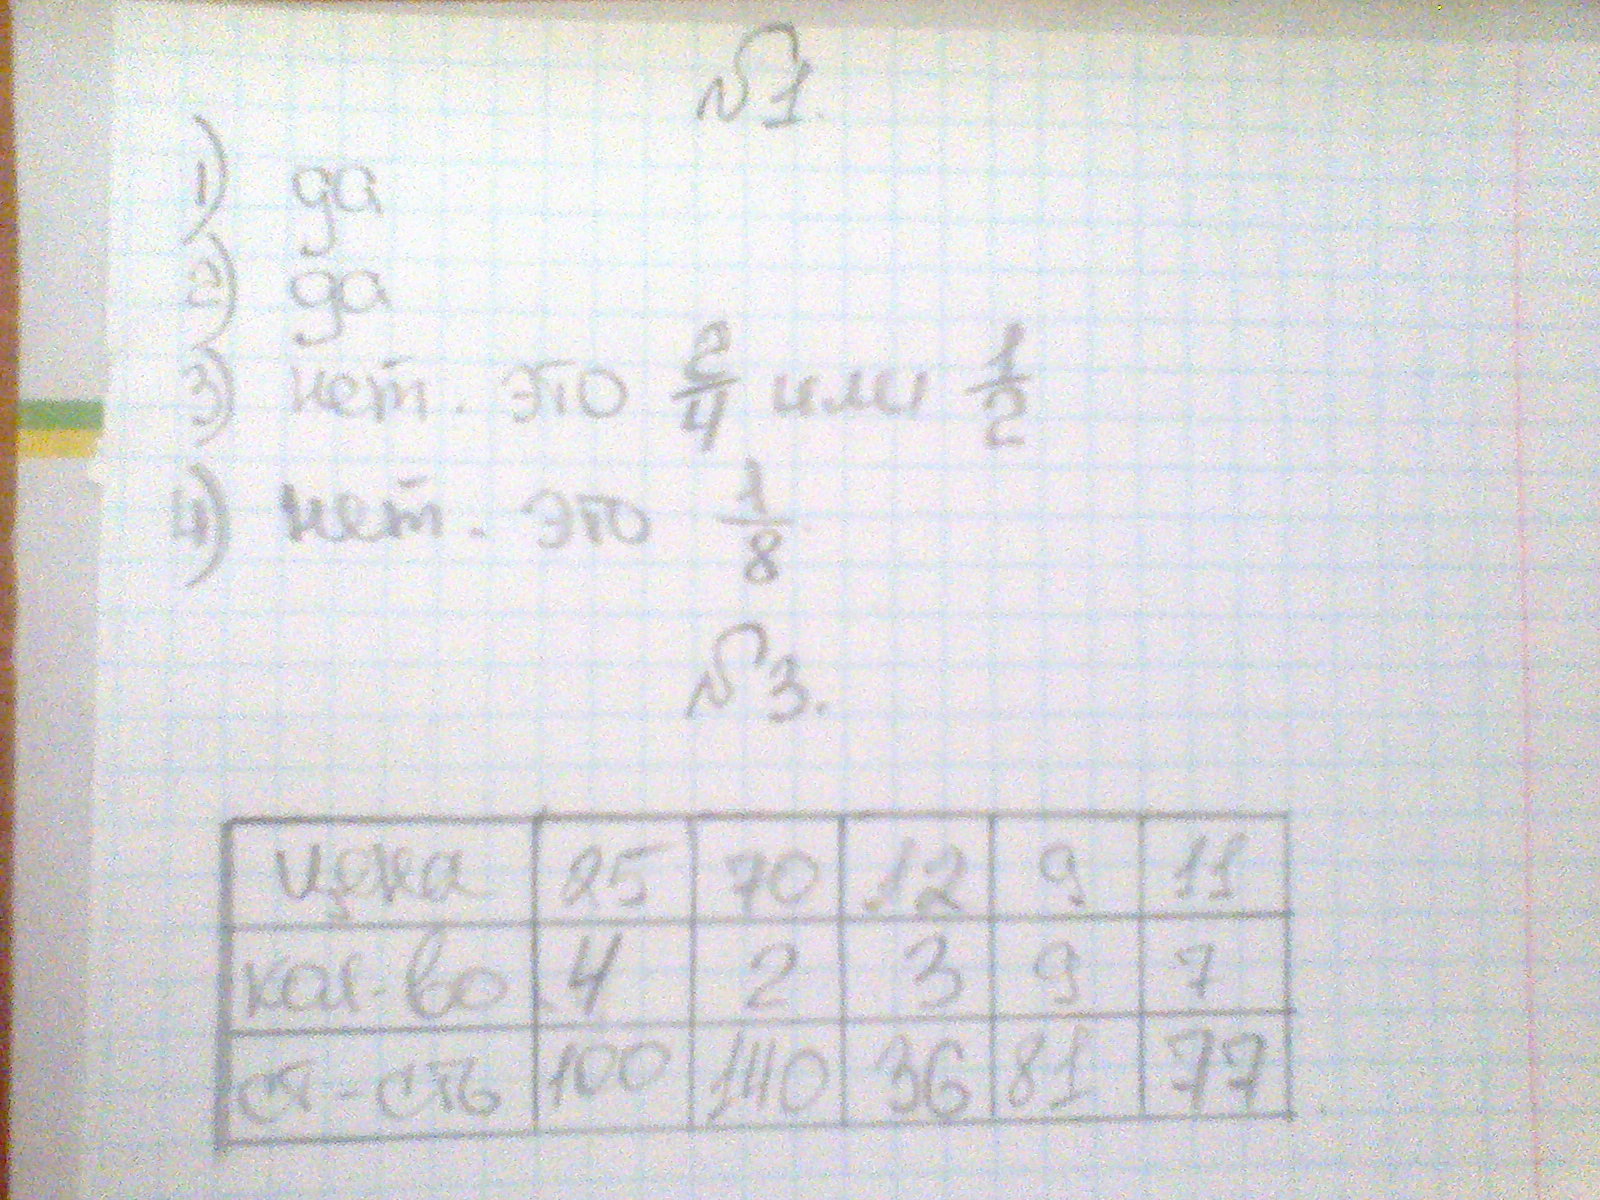 №1.
1) да
2) да
3) нет. это 2/4 или 1/2
4) нет. это 1/8
№3.
цена 25 70 12 9 11
кол-во 4 2 3 9 7
ст-сть 100 140 36 81 77